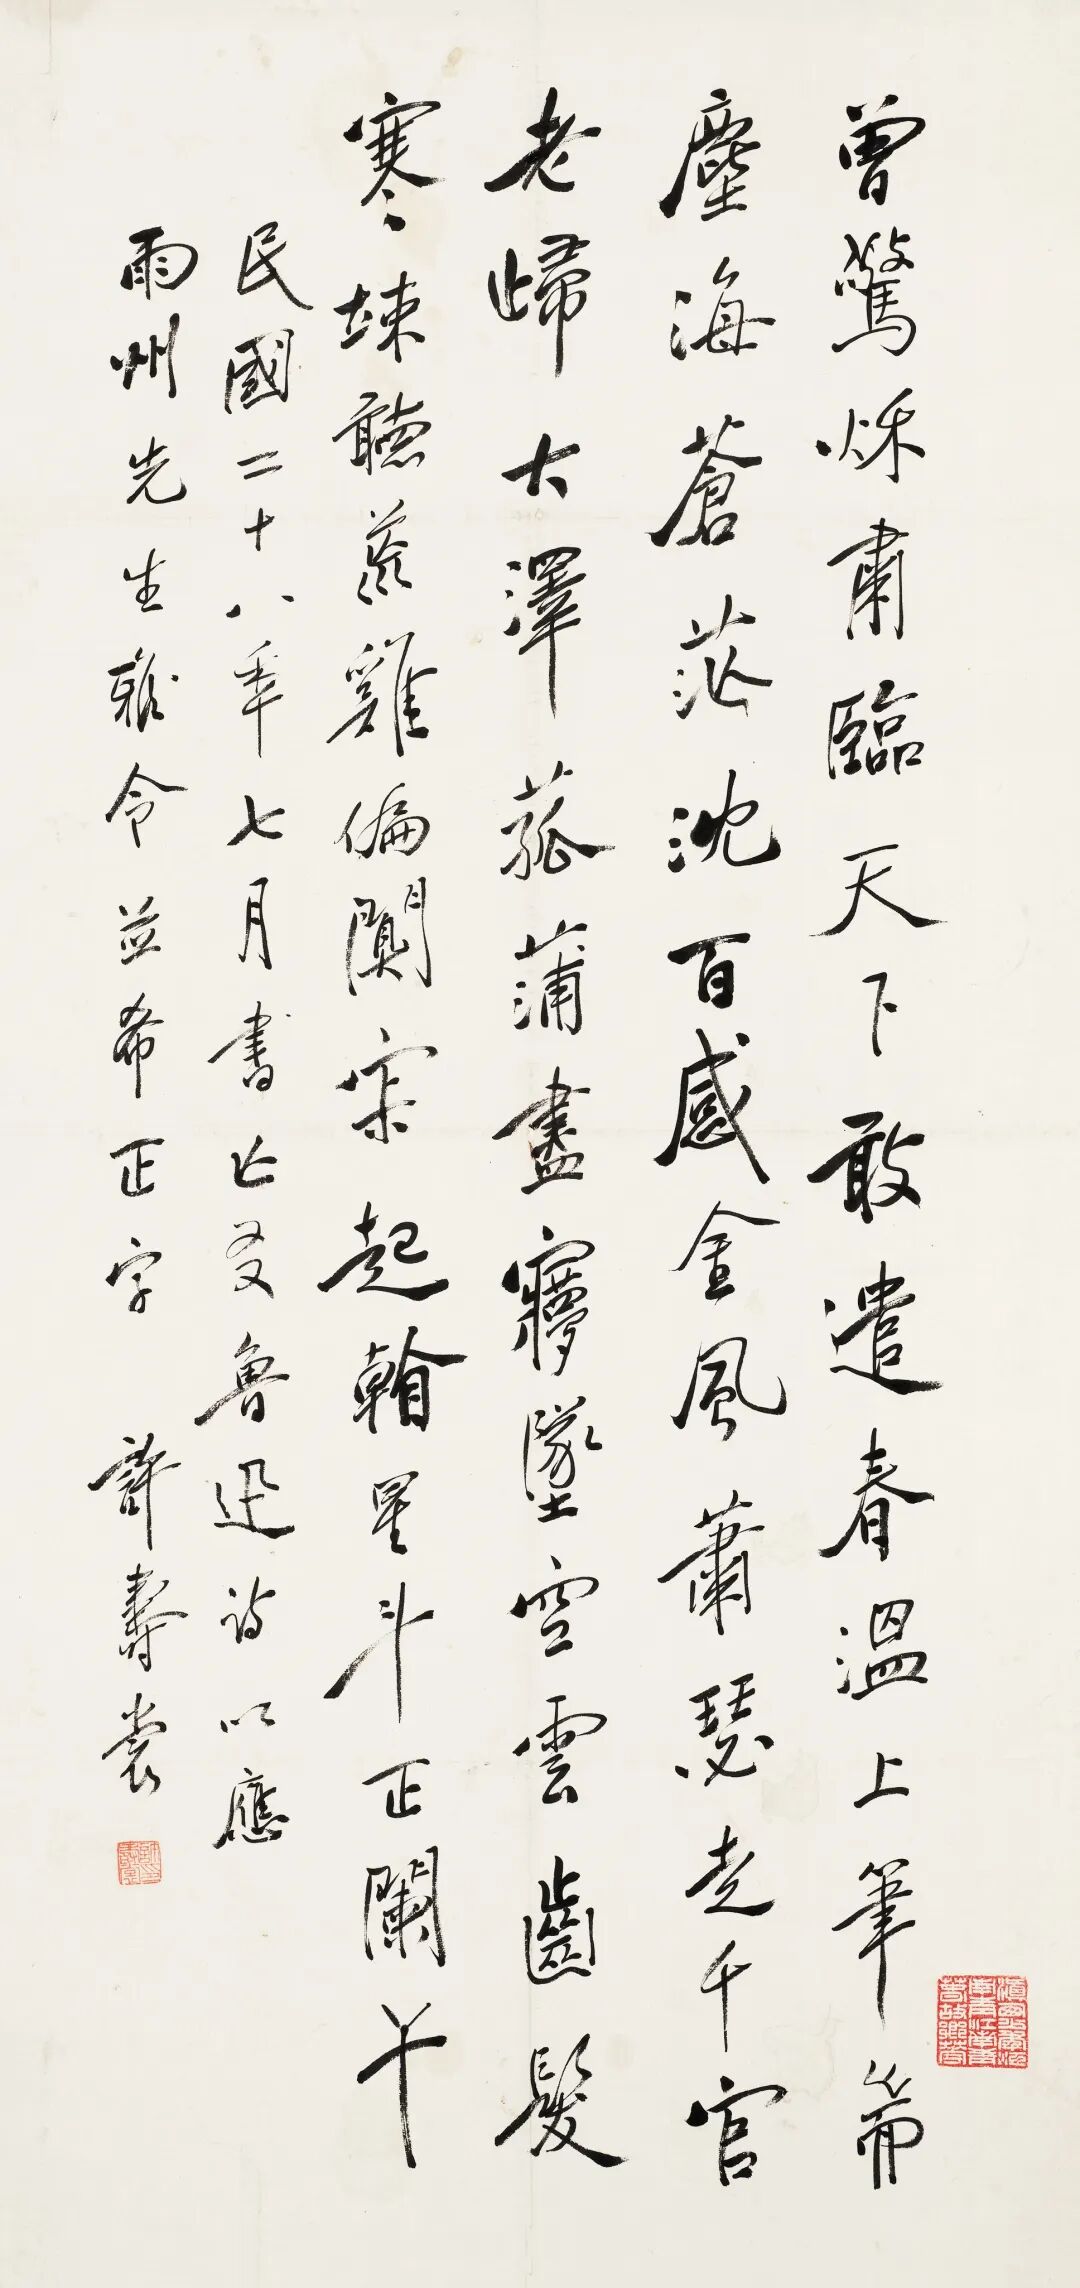 曾驚秌肅臨天下敢遣春溫上筆耑
塵海蒼茫沈百感金風蕭瑟走千官
老歸大澤菰蒲盡㝱墜空雲齒髮
寒竦聽荒雞偏闃寂起看星斗正闌干
民國二十八年七月書亡友魯迅詩以應
雨州先生雅令並希正字 許壽裳